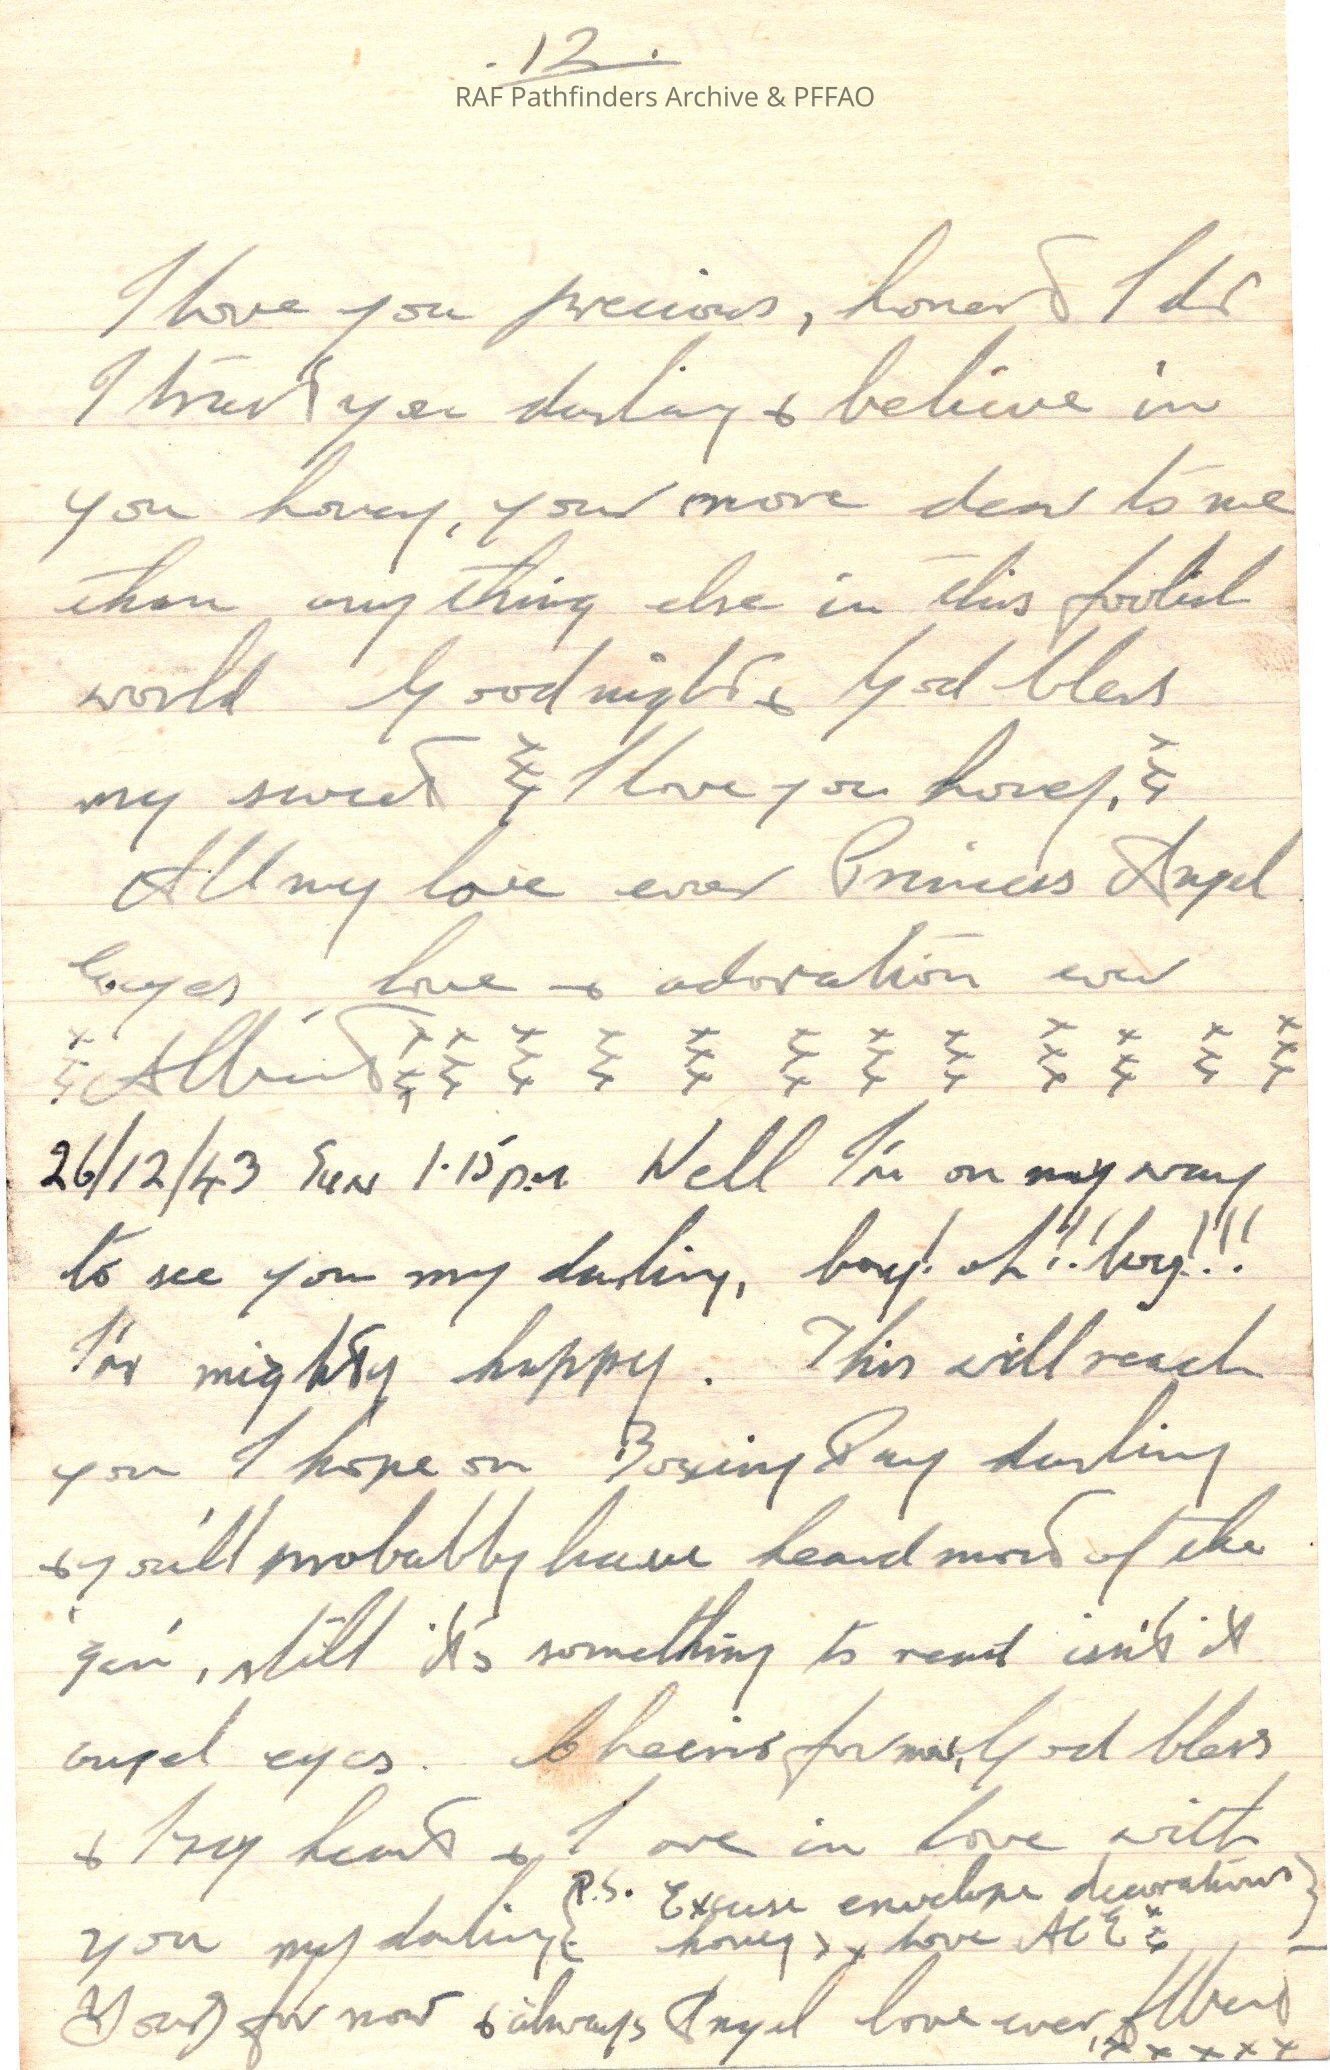 .12.
RAF Pathfinders Archive & PFFAO
I love you precious, honest I do
I trust you darling & believe in
you honey, your more dear to me
than anything else in this foolish
world Goodnight & God bless
my sweet xxx I love you honey, xxx
All my love ever Princess Angel
Eyes, love & adoration ever
xxx Albert xxx xxx xxx xxx xxx xxx xxx xxx xxx xxx xxx xxx
26/12/43 Sun 1.15pm Well I'm on my way
to see you my darling, boy! oh!! boy!!!
I'm mighty happy. This will reach
you I hope on Boxing Day darling
& you'll probably have heard most of the
'gen', still it's something to read isn't it
angel eyes. Cheerio for now, God bless
& my heart & I are in love with
you my darling
{P.S. Excuse envelope decorations
honey, x love xxx}
Yours for now & always Angel love ever, Albert
x x x x x